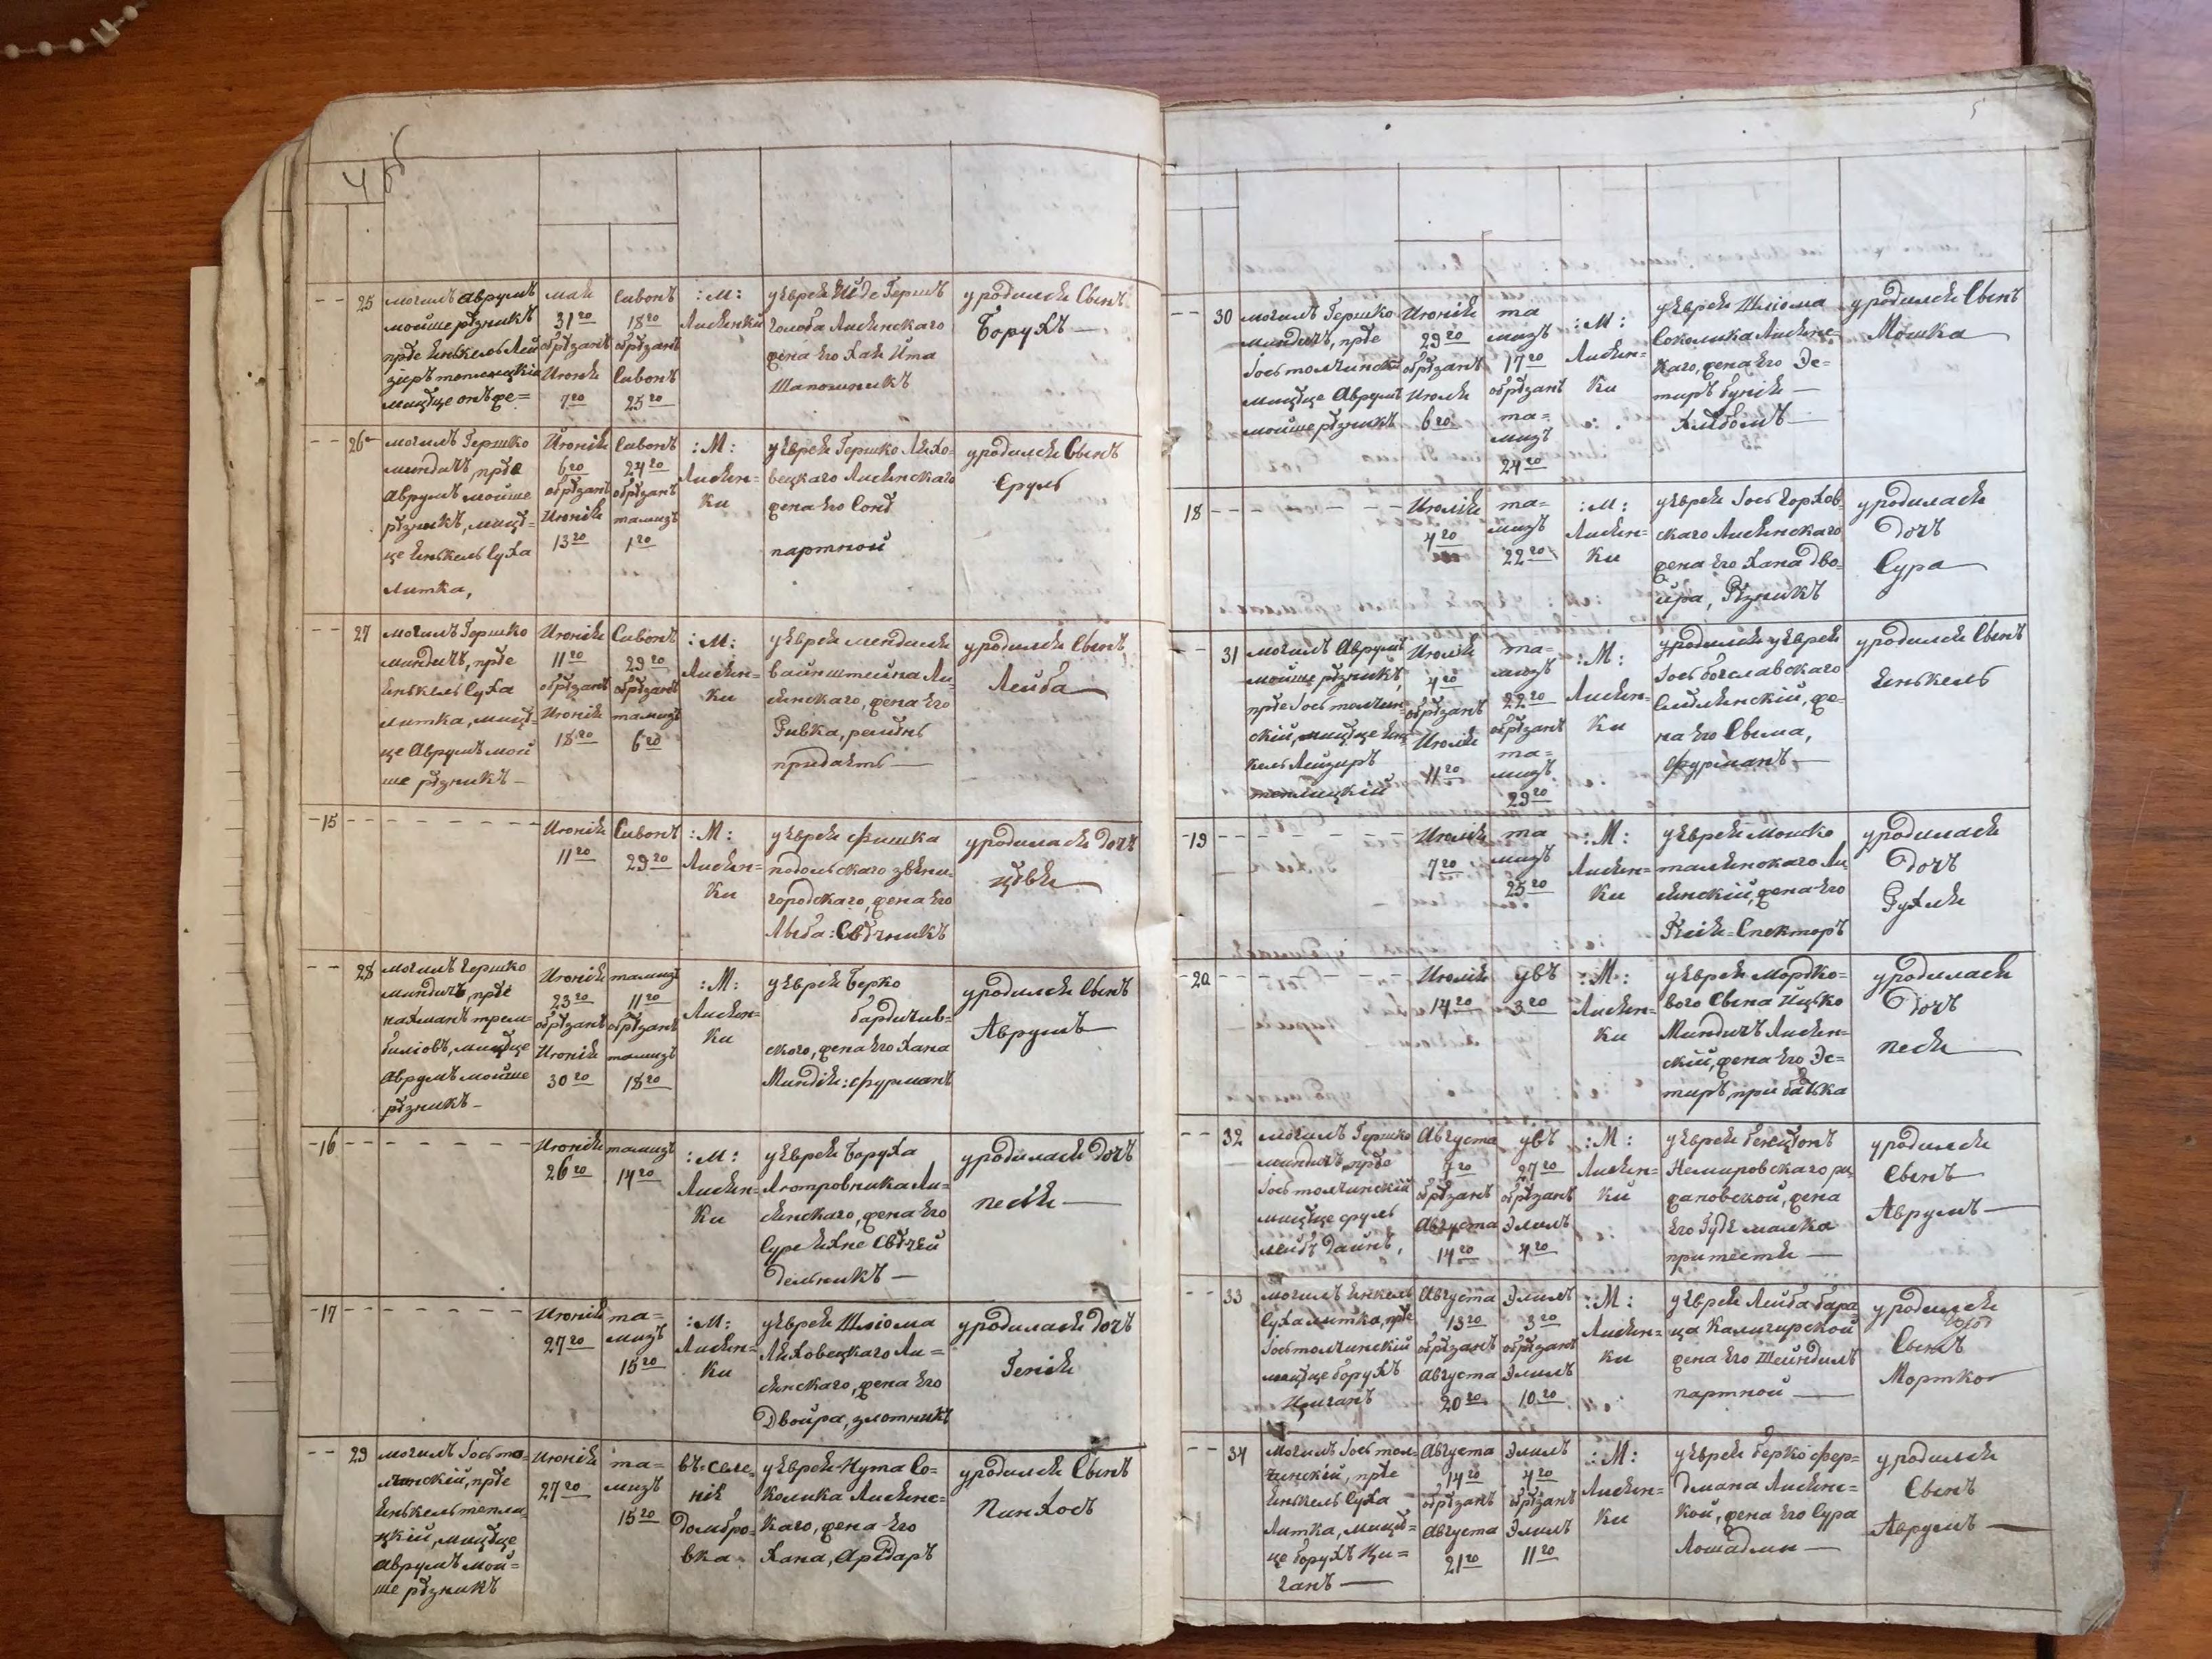 4 об
25
могилъ Аврумъ
мойше рѣзникъ
Маія
31го
обрѣзанъ
Июнія
7го
Сивонъ
18го
обрѣзанъ
Сивонъ
25го
:М:
Лисянки
Лисянскаго
жена его Хая Ита
Шапошникъ
уродился Сынъ
Борухъ
26
могилъ Гершко
миндичъ, прѣе
Аврумъ мойше
рѣзникъ, мицѣ=
це Янкель Суха
литка,
Июнія
6го
обрѣзанъ
Июнія
13го
Сивонъ
24го
обрѣзанъ
тамизъ
1го
:М:
Лисян=
ки
у Еврея Гершко Ляхо=
вецкаго Лисянскаго
жена его Сонѣ
партной
уродился Сынъ
Сруль
27
могилъ Гершко
миндичъ, прѣе
Янкель Суха
литка, мицѣ=
це Аврумъ мой
ше рѣзникъ
Июнія
11го
обрѣзанъ
Июнія
18го
Сивонъ
29го
обрѣзанъ
тамизъ
6го
:М:
Лисян=
ки
у Еврея менделя
вайнштейна Ли=
сянскаго, жена его
Ривка,
уродился Сынъ
Лейба
15
Июнія
11го
Сивонъ
29го
:М:
Лисян=
ки
у Еврея Фишка
подольскаго звени=
городскаго, жена его
уродилася дочь
цѣвья
28
могилъ Гершко
миндичъ, прѣе
нахманъ
мицѣце
Аврумъ мойше
рѣзникъ
Июнія
23го
обрѣзанъ
Июнія
30го
тамизъ
11го
обрѣзанъ
тамизъ
18го
:М:
Лисян=
ки
у Еврея Берко
бардичив=
ского, жена его Хана
Миндія: фурманъ
уродился Сынъ
Аврумъ
16
Июнія
26го
тамизъ
14го
:М:
Лисян=
ки
у Еврея Боруха
Ли=
сянскаго, жена его
Суре Свѣчей
дельникъ
уродилася дочь
песья
17
Июнія
27го
та=
мизъ
15го
:М:
Лисян=
ки
у Еврея Шліома
Ляховецкаго Ли=
сянскаго, жена его
Двойра, злотникъ
уродилася дочь
Генія
29
могилъ Іось тол=
чинскій, прѣе
Янкель тепли=
цкій, мицѣце
Аврумъ мой=
ше рѣзникъ
Июнія
27го
та=
мизъ
15го
въ селе=
ніи
домбро=
вка
у Еврея Нута Со=
колика Лисянс=
каго, жена его
Хана, Арѣдаръ
уродился Сынъ
Пинхосъ
5
30
могилъ Гершко
миндичъ, прѣе
Іось толчинскій
мицѣце Аврумъ
мойше рѣзникъ
Июнія
29го
обрѣзанъ
Июлія
6го
та
мизъ
17го
обрѣзанъ
та=
мизъ
24го
:М:
Лисян=
ки
у Еврея Шліома
Соколика Лисянс=
каго, жена его Эс=
тиръ
уродился Сынъ
Мошка
18
Июлія
4го
та=
мизъ
22го
:М:
Лисян=
ки
у Еврея Іось
скаго Лисянскаго
жена его Хана дво=
йра, Рѣзникъ
уродилася
дочъ
Сура
31
могилъ Аврумъ
мойше рѣзникъ,
прѣе Іось толчин=
скій, мицѣце Ян=
кель Лейзиръ
теплицкій
Июлія
4го
обрѣзанъ
Июлія
11го
та=
мизъ
22го
обрѣзанъ
та=
мизъ
29го
:М:
Лисян=
ки
уродился у Еврея
Іось богславскаго
же=
на его Сима,
фурманъ
уродился Сынъ
Янкель
19
Июлія
7го
та
мизъ
25го
:М:
Лисян=
ки
у Еврея Мошко
Ли=
сянскій, жена его
Спекторъ
уродилася
дочъ
Рухля
20
Июлія
14го
увъ
3го
:М:
Лисян=
ки
у Еврея Мордко=
вого Сына Ицько
Миндичъ Лисян=
скій, жена его Эс=
тиръ, при батька
уродилася
дочъ
песя
32
могилъ Гершко
миндичъ, прѣе
Іось толчинскій
мицѣце сруль
лейбъ даинъ,
Августа
7го
обрѣзанъ
Августа
14го
увъ
27го
обрѣзанъ
Элилъ
4го
:М:
Лисян=
ки
у Еврея
Немировскаго ри=
жановской, жена
его Гудя малка
при тестя
уродился
Сынъ
Аврумъ
33
могилъ Янкель
Суха литка, прѣе
Іось толчинскій
мицѣце борухъ
Циганъ
Августа
13го
обрѣзанъ
Августа
20го
Элилъ
3го
обрѣзанъ
Элилъ
10го
:М:
Лисян=
ки
у Еврея Лейба
Калигирской
жена его Шейндиль
партной
уродился
Сынъ
Мортко
34
могилъ Іось тол=
чинскій, прѣе
Янкель Суха
литка, мицѣ=
це борухъ Ци=
ганъ
Августа
14го
обрѣзанъ
Августа
21го
Элилъ
4го
обрѣзанъ
Элилъ
11го
:М:
Лисян=
ки
у Еврея берко фер=
дмана Лисянс=
кой, жена его Сура
уродился
Сынъ
Аврумъ